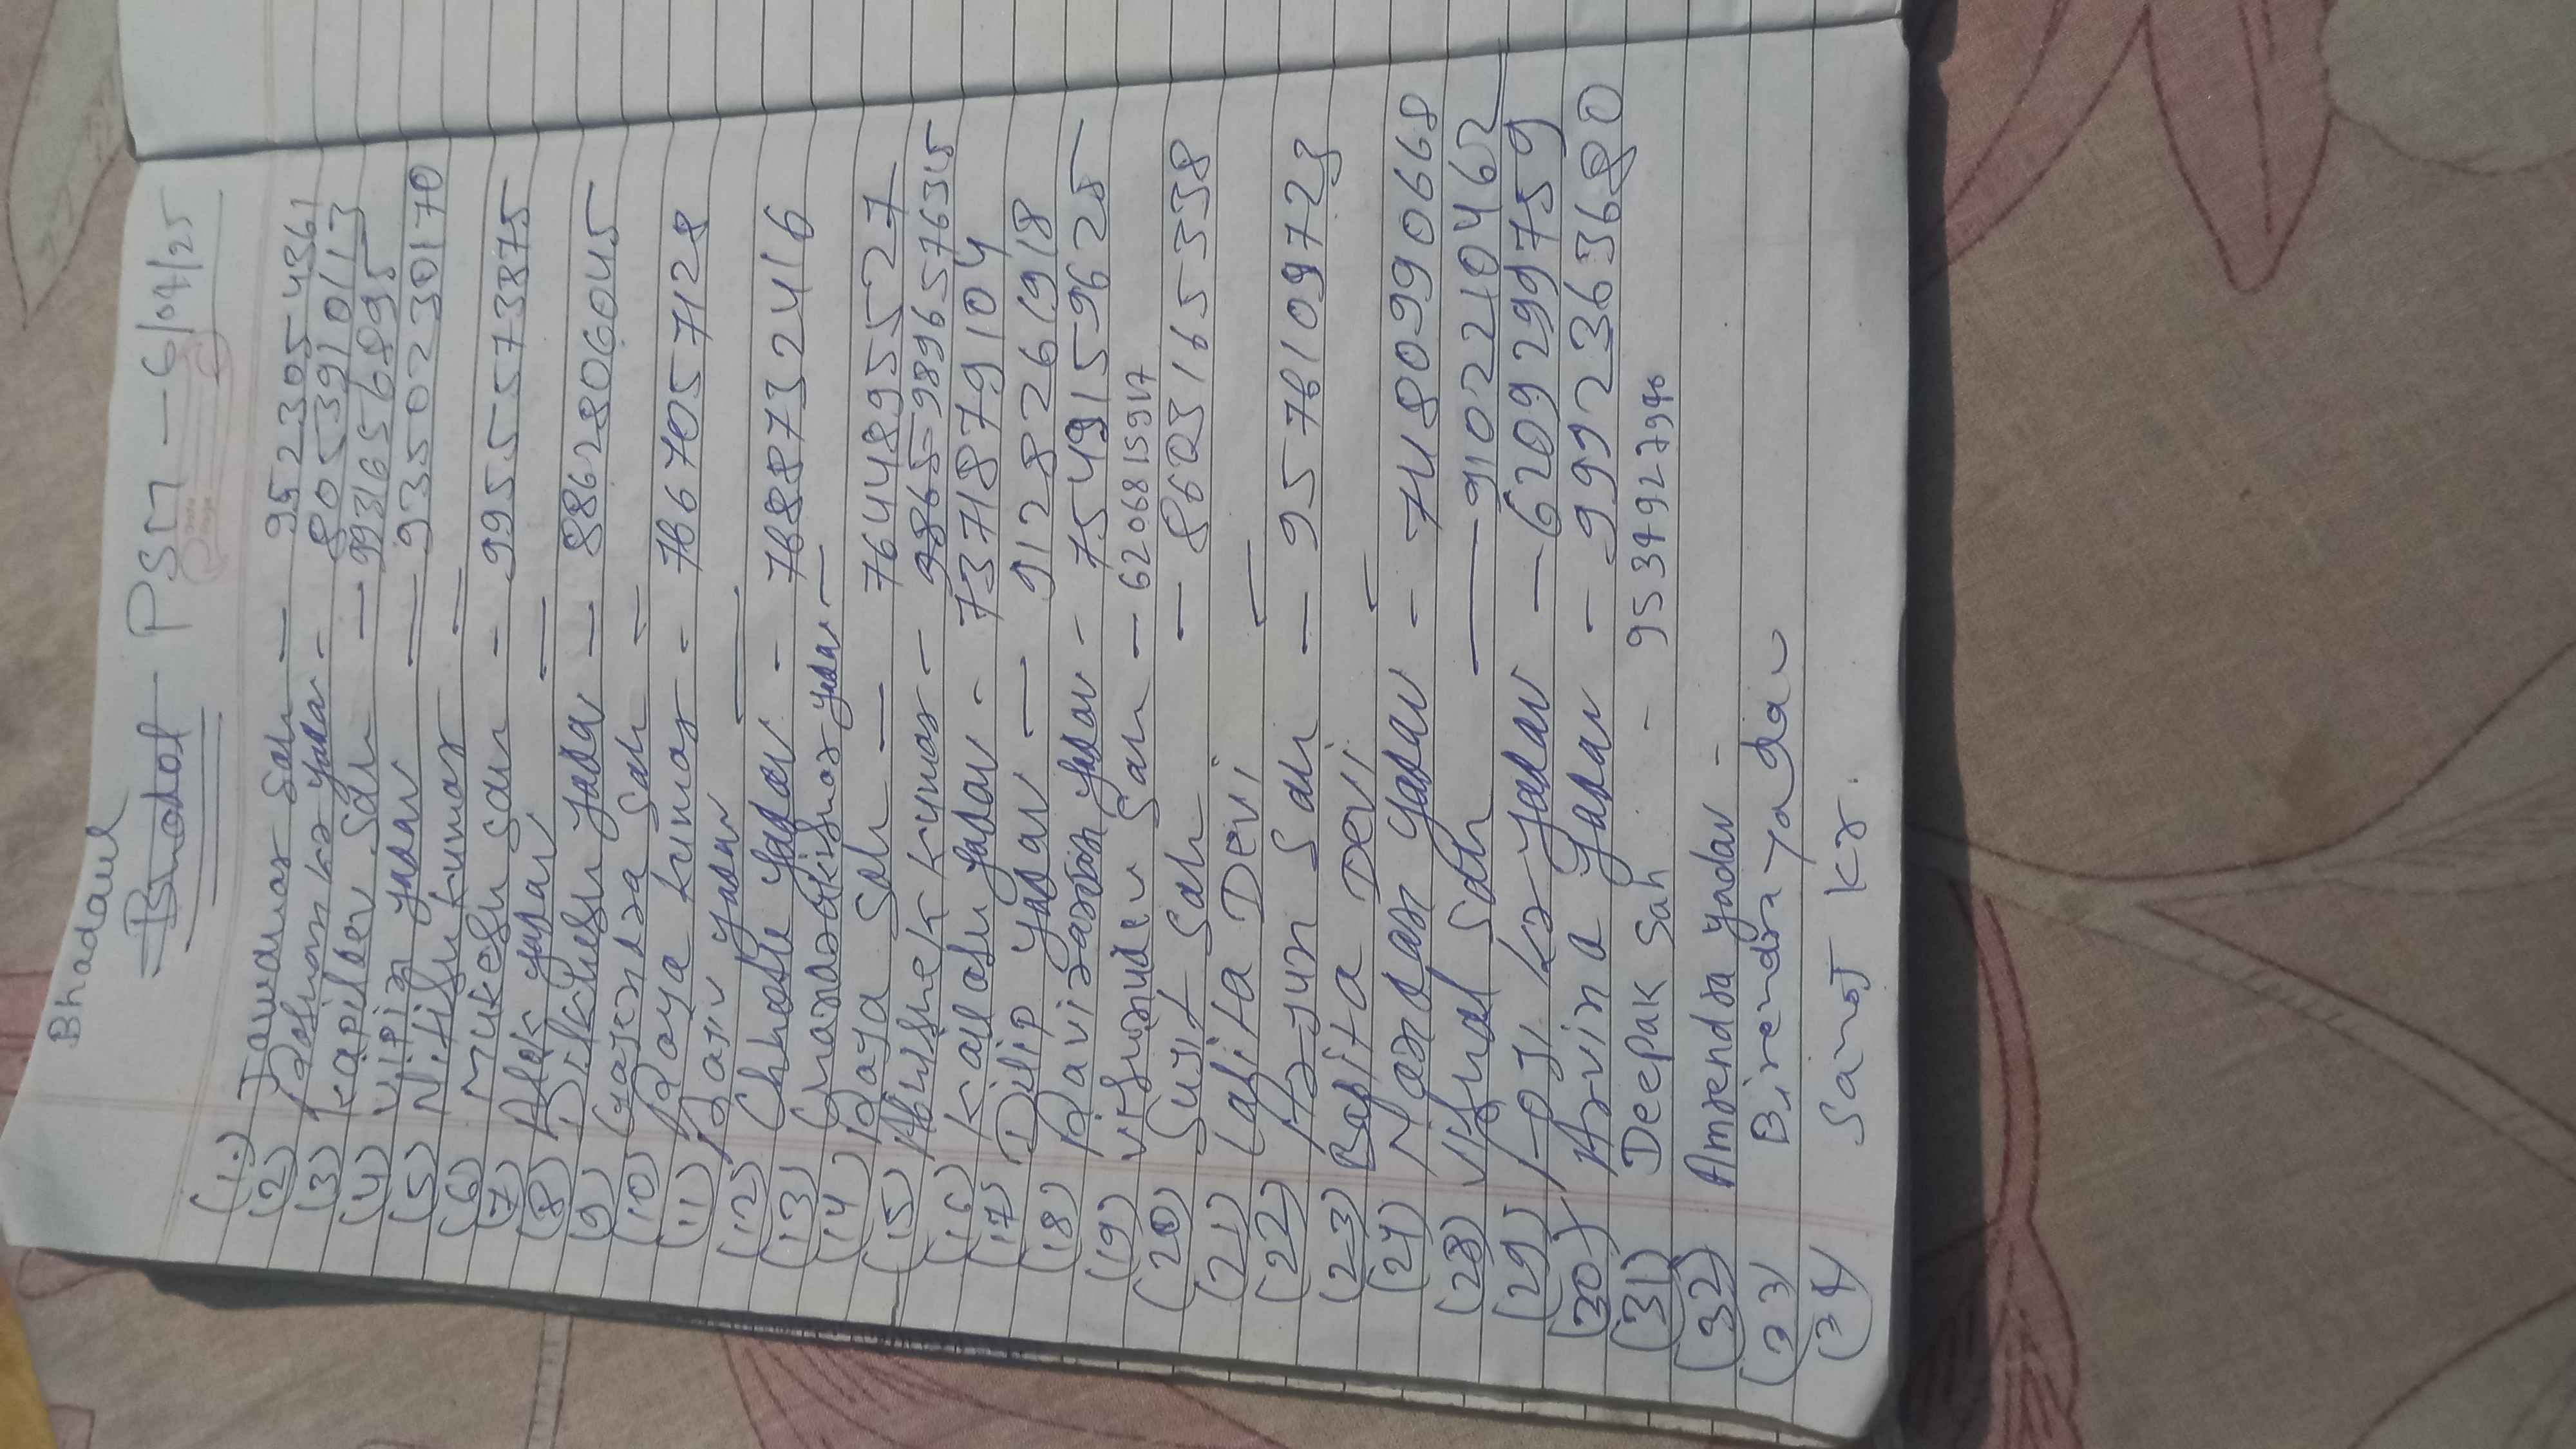 Bhadaul
PSM — 6/04/25
(1.) Jawahar Sah — 9523054361
(2) Roshan kr yadav - 8053910113
(3) Kapildev Sah — 9931656895
(4) Vipin yadav — 9350230170
(5) Nitish kumar =
(6) Mukesh Sah - 9955573875
(7) Alok yadav =
(8) Dikhesh yadav — 8862806045
(9) Gajendra Sah =
(10) Raja kumar - 7667057128
(11) Rajiv yadav =
(12) Chhotu yadav - 7688732416
(13) Yadav —
(14) Raja Sah — 7644895527
(15) Abhishek kumar - 9896557635
(16) Kailash yadav - 7371879104
(17) Dilip yadav — 9128261918
(18) Ravi yadav - 7549159625
(19) Vishnudev Sah — 6206815917
(20) Sujit Sah — 8603165338
(21) Lalita Devi
(22) Arjun Sah — 9576109723
(23) Babita Devi
(24) yadav - 7480990668
(28) Vishal Sah — 9102210462
(29) kr yadav — 6209299759
(30) Arvind yadav - 9992363680
(31) Deepak Sah -
(32) Amrendra yadav -
(33) Birendra Yadav
(34) Sanoj kr.